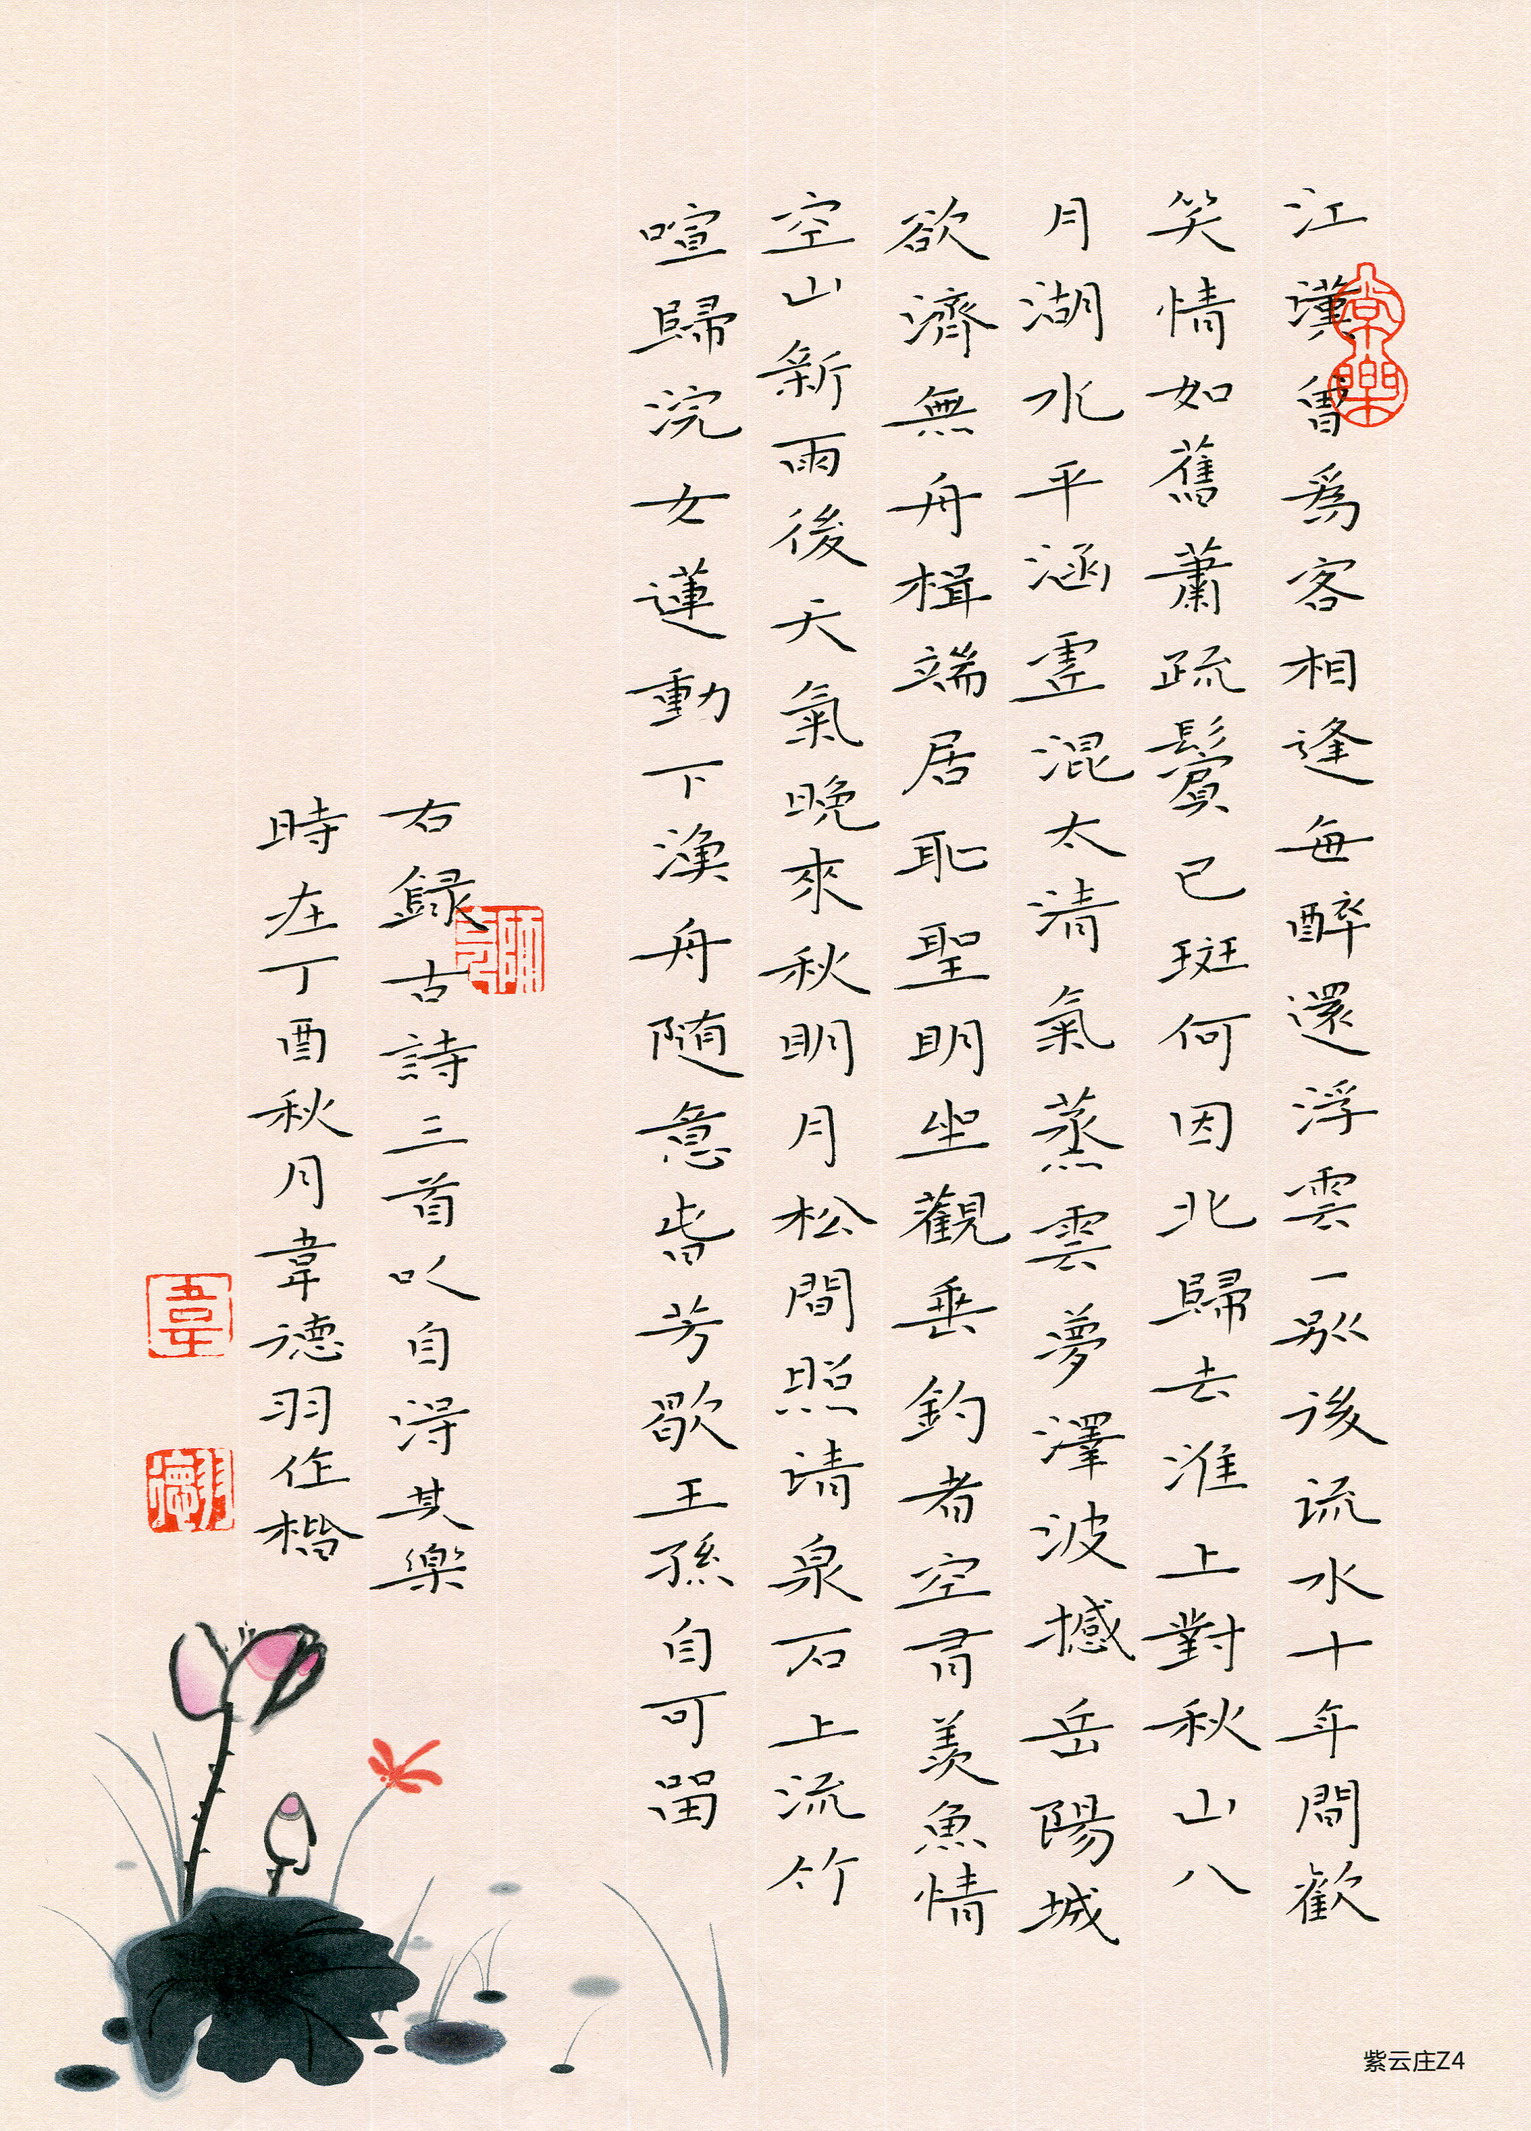 江漢曾爲客相逢每醉還浮雲一别後流水十年間歡
笑情如舊蕭疏鬢已斑何因北歸去淮上對秋山八
月湖水平涵虛混太清氣蒸雲夢澤波撼岳陽城
欲濟無舟楫端居恥聖明坐觀垂釣者空有羨魚情
空山新雨後天氣晚來秋明月松間照清泉石上流竹
喧歸浣女蓮動下漁舟随意春芳歇王孫自可留
右録古詩三首以自得其樂
時在丁酉秋月韋德羽作楷
常樂
韋
德羽
紫云庄Z4